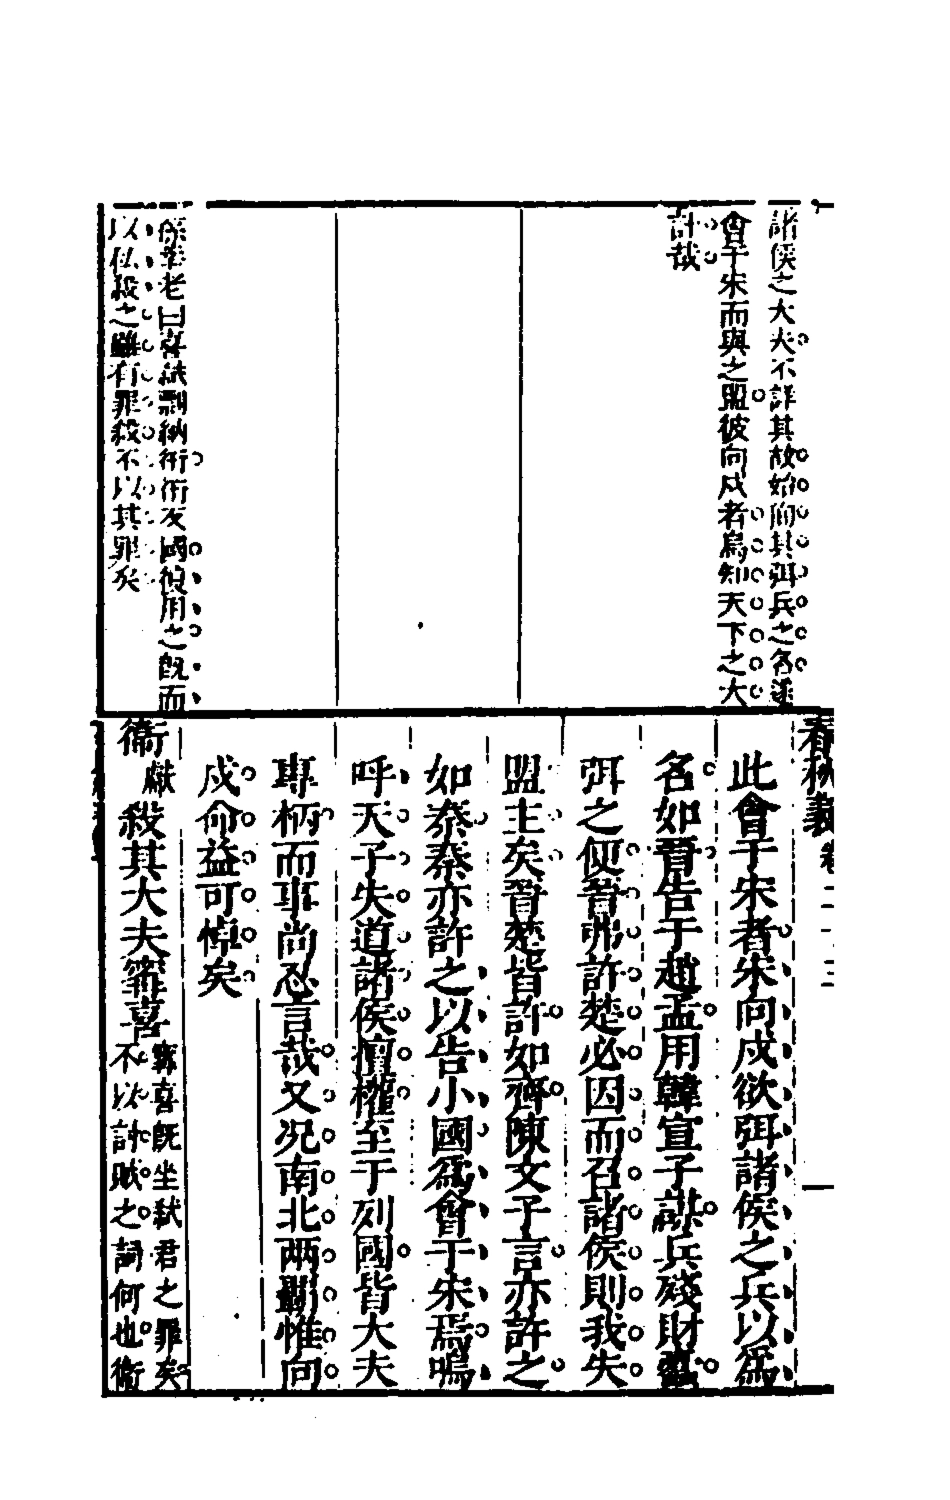 諸侯之大夫不詳其故始徇其弭兵之名遂
會于宋而與之盟彼向戌者烏知天下之大
計哉
孫莘老曰喜弒剽納衎衎反國復用之既而
以私殺之雖有罪殺不以其罪矣
春秋義 卷二十三
此會于宋者宋向戌欲弭諸侯之兵以爲
名如晉告于趙孟用韓宣子謀兵殘財蠹
弭之便晉弗許楚必因而召諸侯則我失
盟主矣晉楚皆許如齊陳文子言亦許之
如秦秦亦許之以告小國爲會于宋焉嗚
呼天子失道諸侯擅權至于列國皆大夫
專柄而事尚忍言哉又况南北兩霸惟向
戌命益可悼矣
衞獻殺其大夫甯喜甯喜既坐弒君之罪矣
不以討賊之詞何也衞